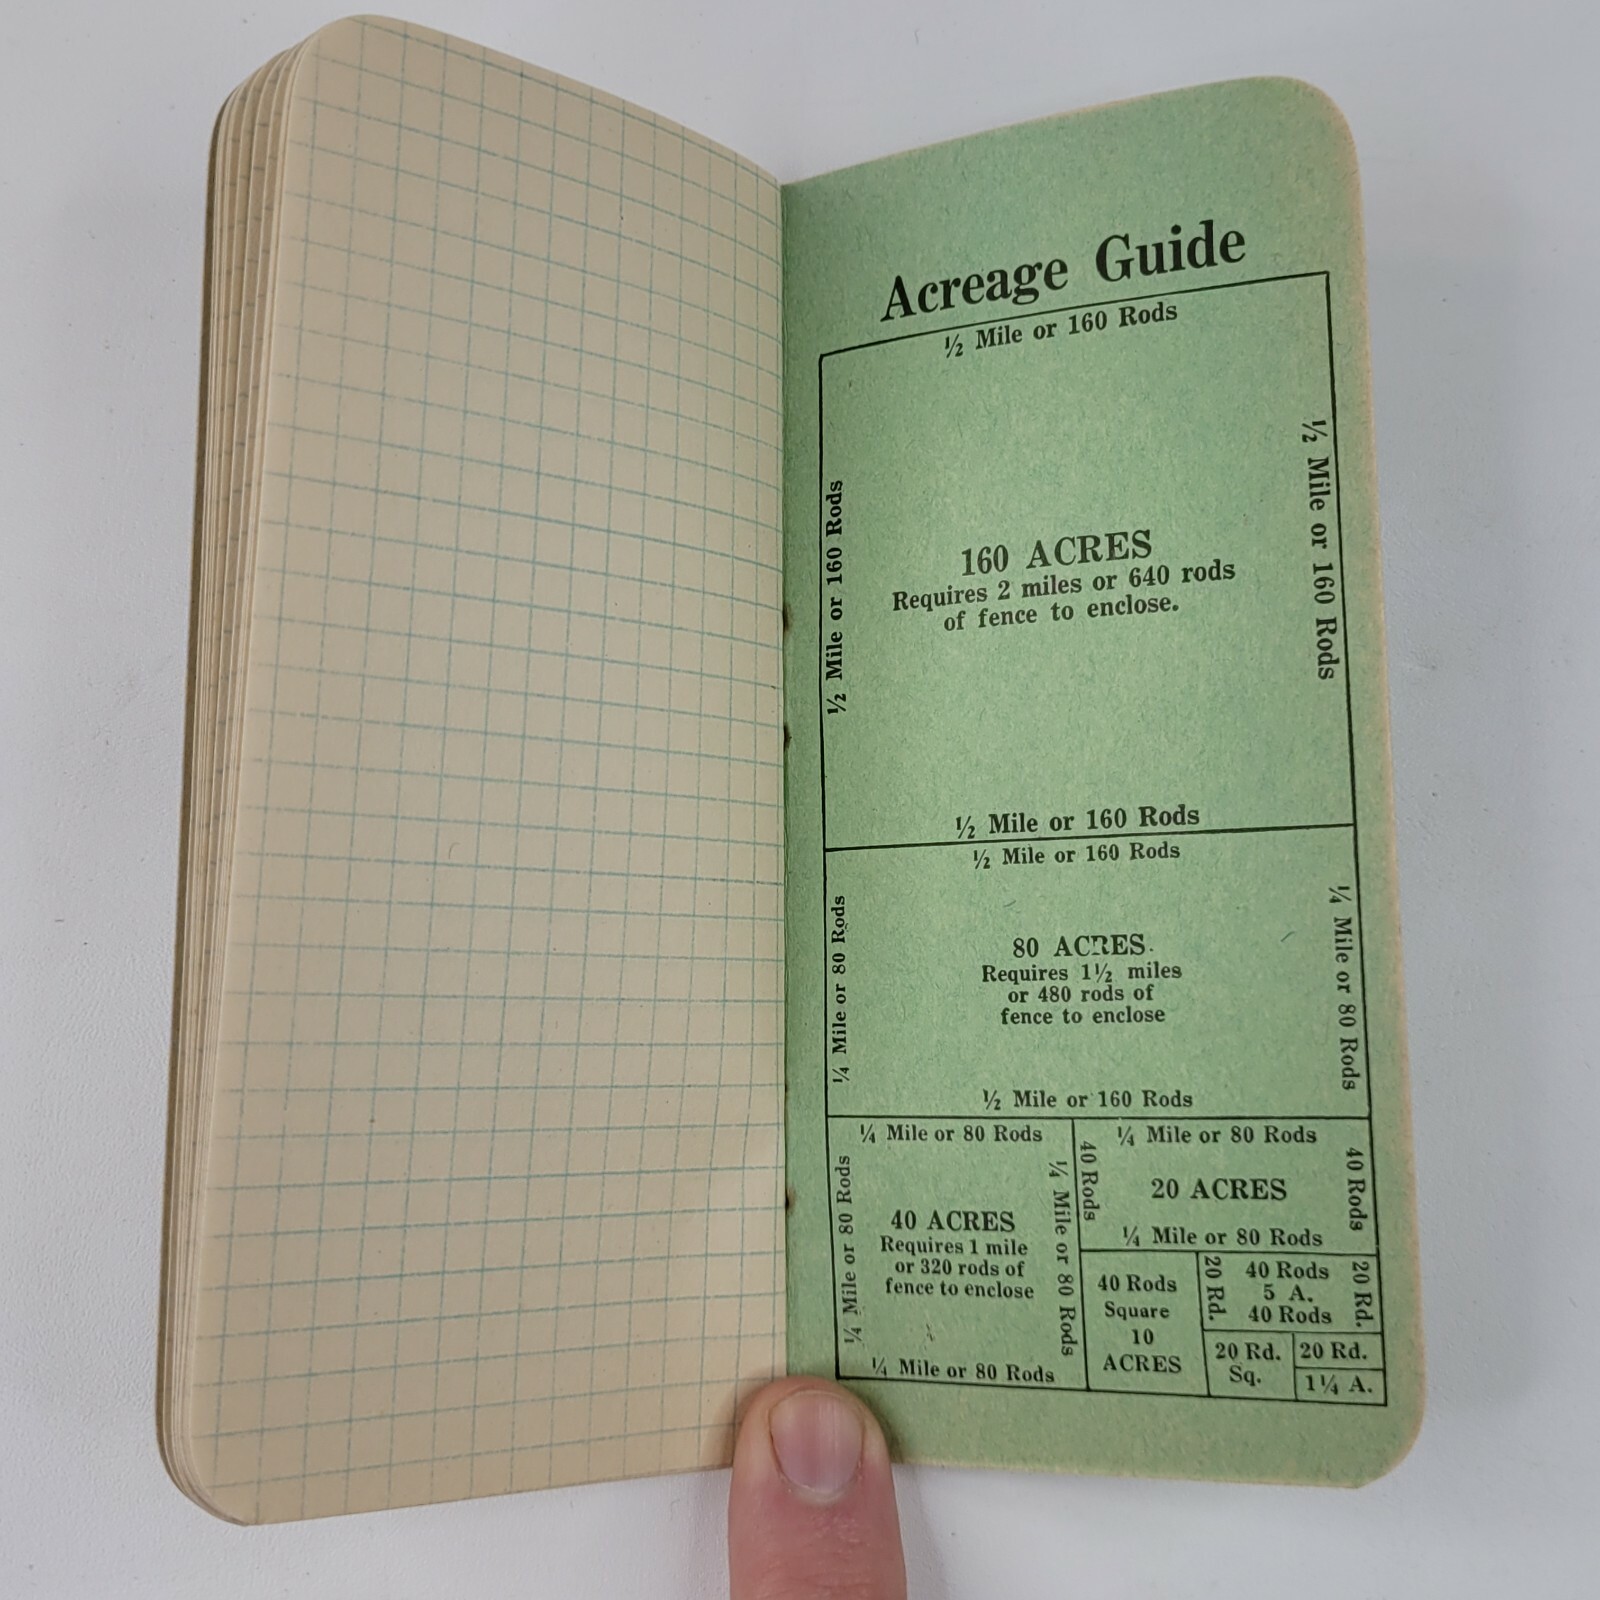 Acreage Guide
½ Mile or 160 Rods
½ Mile or 160 Rods
½ Mile or 160 Rods
160 ACRES
Requires 2 miles or 640 rods
of fence to enclose.
½ Mile or 160 Rods
½ Mile or 160 Rods
¼ Mile or 80 Rods
¼ Mile or 80 Rods
80 ACRES
Requires 1½ miles
or 480 rods of
fence to enclose
½ Mile or 160 Rods
¼ Mile or 80 Rods
¼ Mile or 80 Rods
¼ Mile or 80 Rods
40 ACRES
Requires 1 mile
or 320 rods of
fence to enclose
¼ Mile or 80 Rods
¼ Mile or 80 Rods
40 Rods
40 Rods
20 ACRES
¼ Mile or 80 Rods
40 Rods
Square
10
ACRES
20 Rd.
40 Rods
5 A.
40 Rods
20 Rd.
20 Rd.
Sq.
20 Rd.
1¼ A.